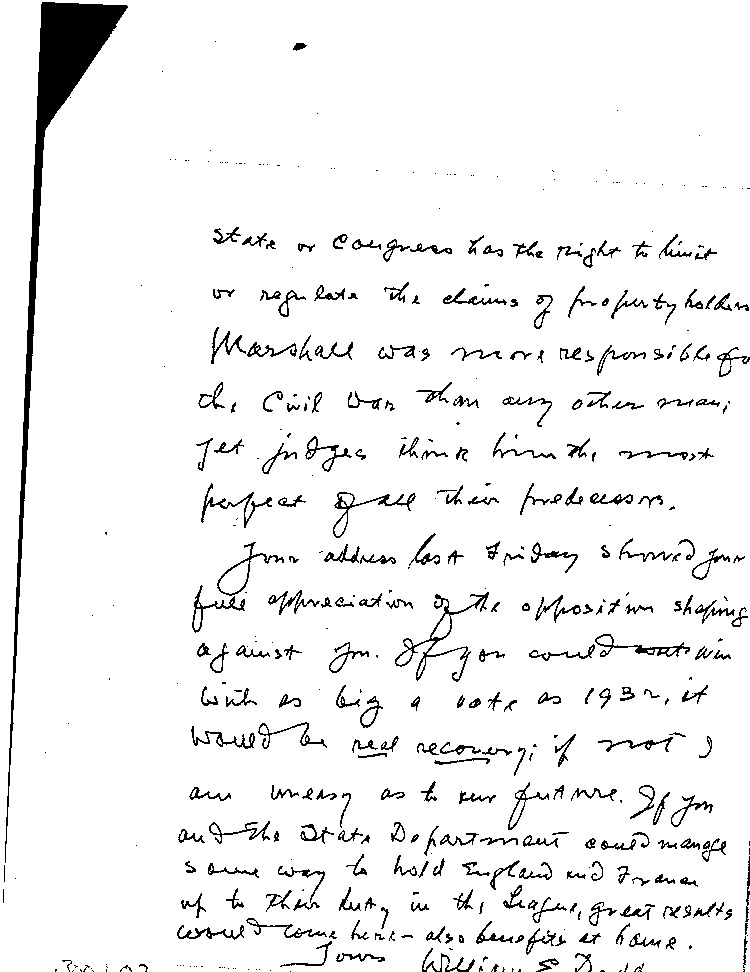 state or Congress has the right to limit
or regulate the claims of property holders
Marshall was more responsible fo
the Civil War than any other man;
yet judges think him the most
perfect of all their predecessors.
Your address last Friday showed your
full appreciation of the opposition shaping
against you. If you could win
with as big a vote as 1932, it
would be real recovery; if not I
am uneasy as to our future. If you
and the State Department could manage
some way to hold England and France
up to their duty in the League, great results
would come here - also benefits at home.
Yours William E Dodd